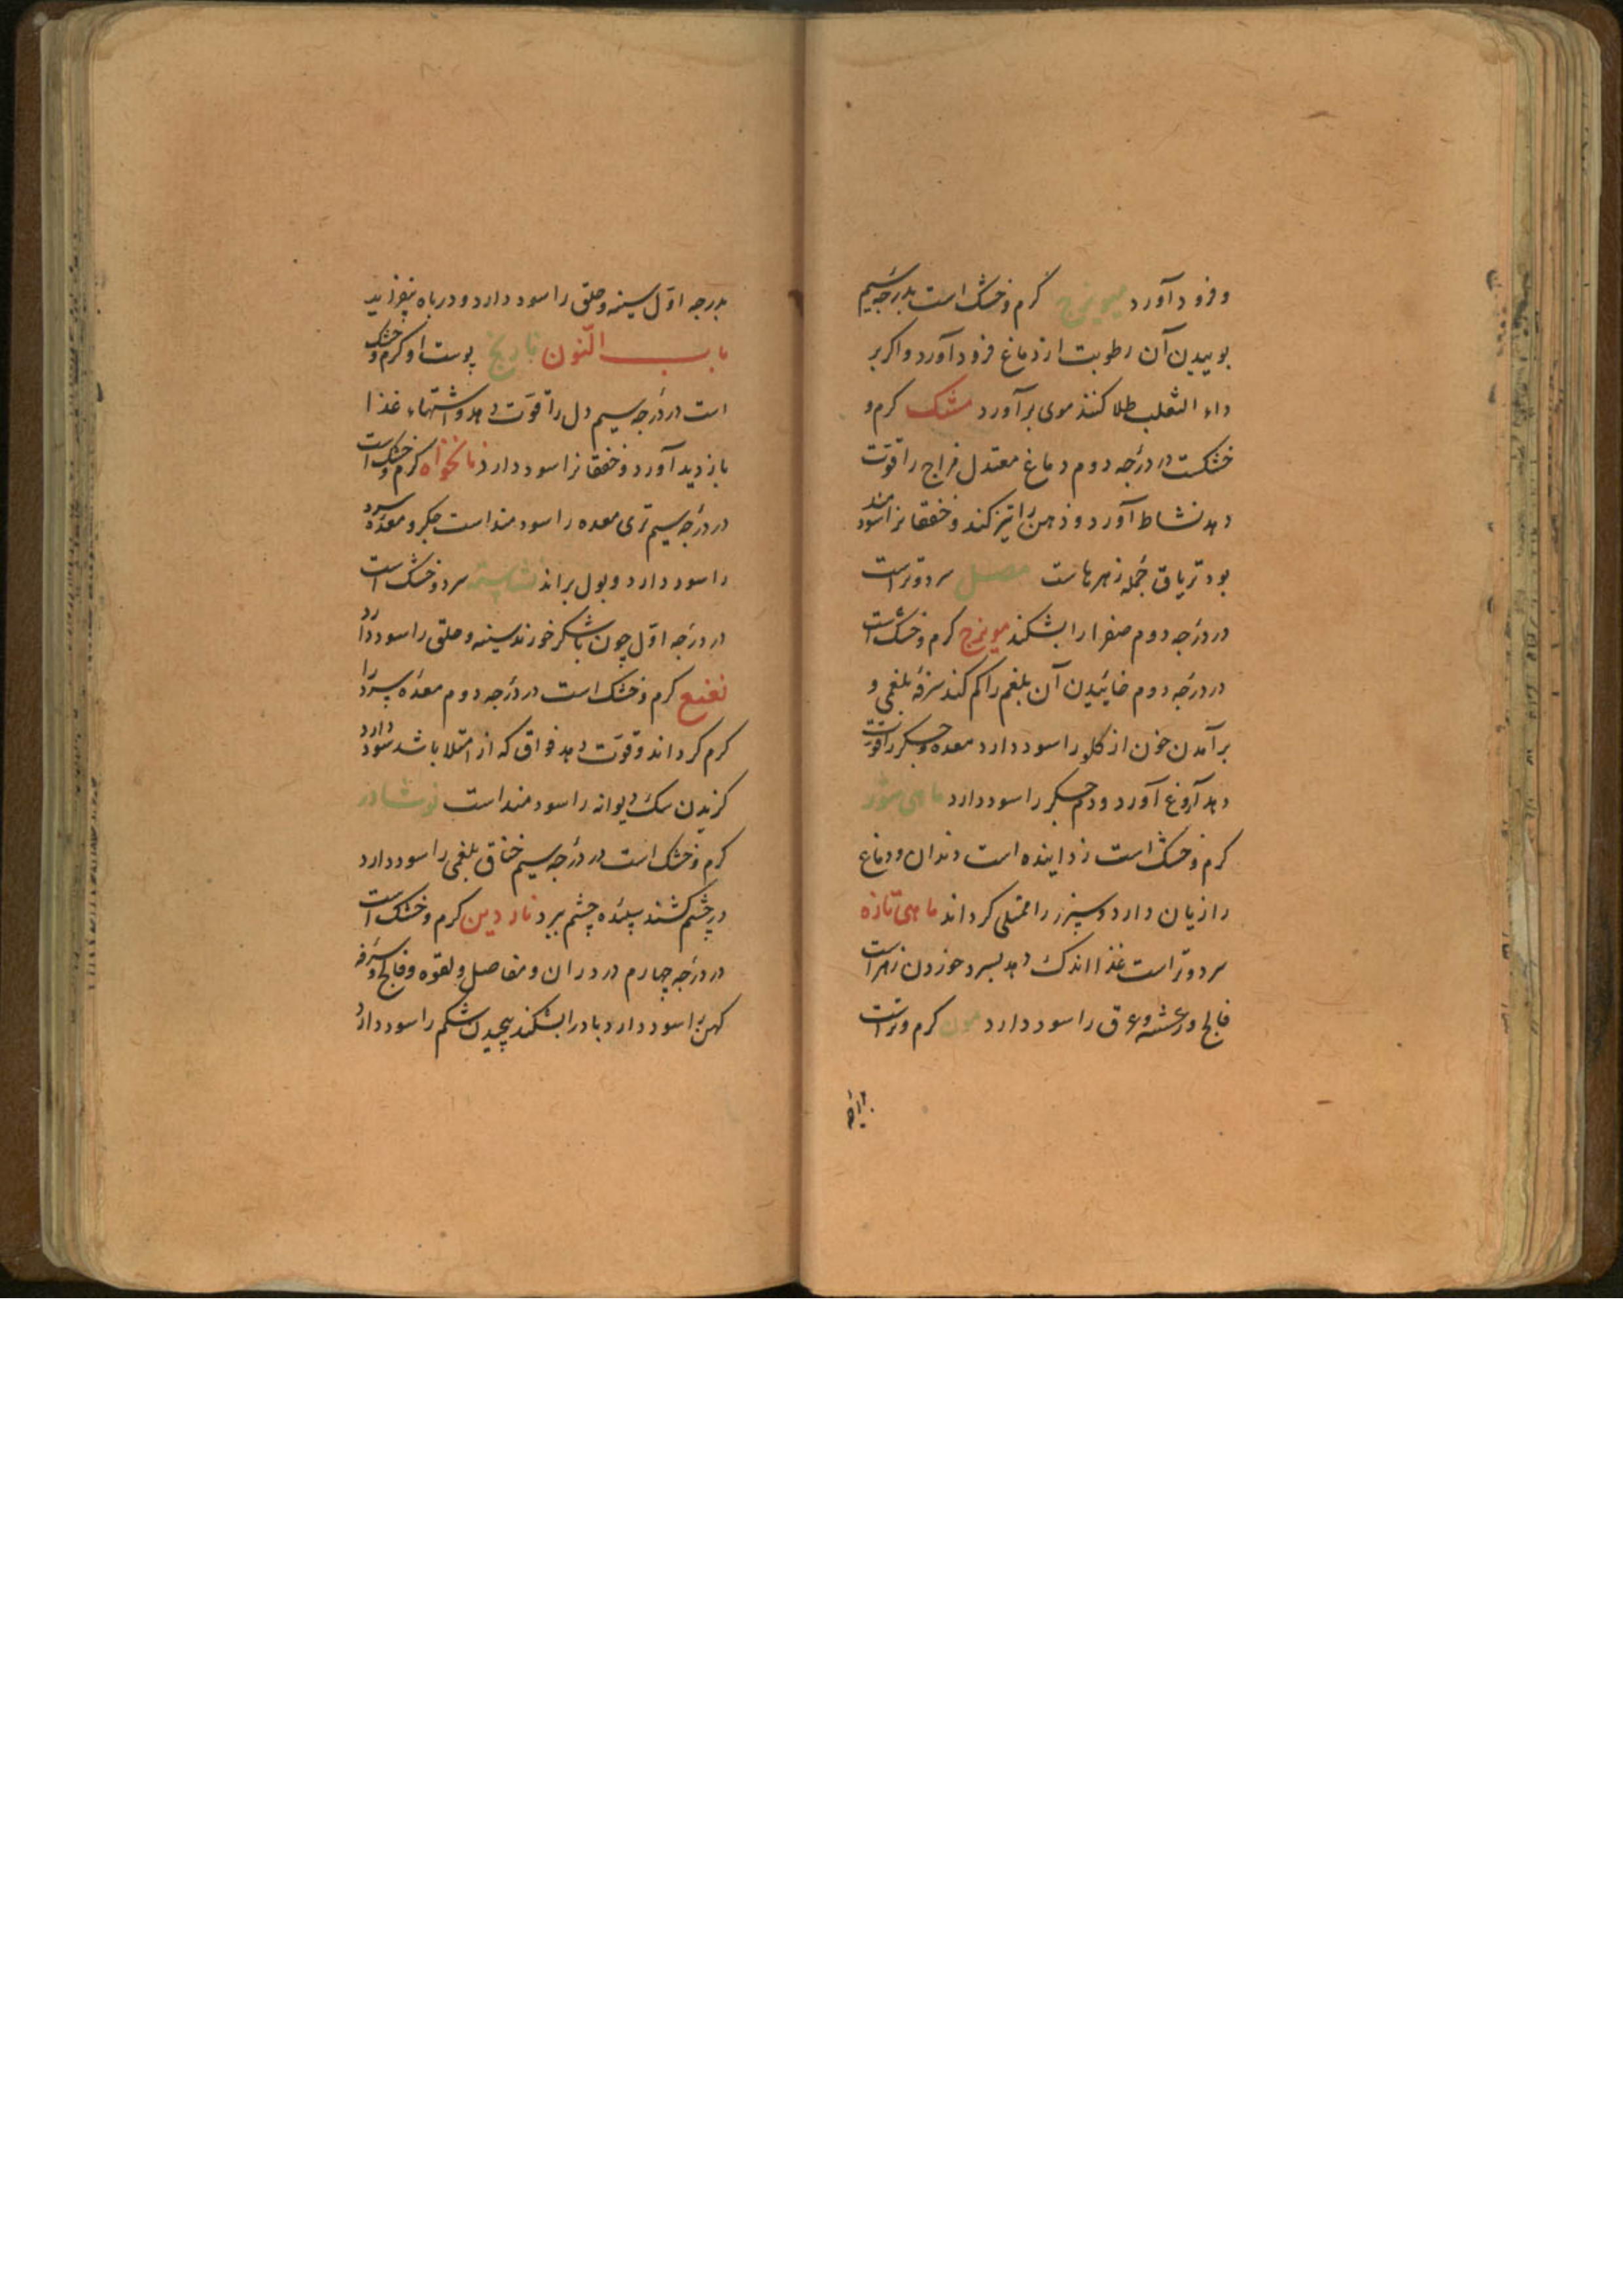 و فرود آورد میویزج گرم و خشک است بدرجه سیم
بوییدن آن رطوبت از دماغ فرود آورد و اکر بر
داء الثعلب طلا کنند موی برآورد مشک کرم و
خشکست در درجه دوم دماغ معتدل مزاج را قوت
دهد نشاط آورد و ذهن را تیز کند و خفقانرا سودمند
بود تریاق جمله زهرهاست مصل سرد و تر است
در درجه دوم صفرا را بشکند مویزج کرم و خشک است
در درجه دوم خائیدن آن بلغم را کم کند سرفه بلغمی و
برآمدن خون از کلو را سود دارد معده و جکر را قوت
دهد آروغ آورد و درد جکر را سود دارد ماهی شور
کرم و خشک است زداینده است دندان و دماغ
را زیان دارد و سپرز را ممتلی کرداند ماهی تازه
سرد و تر است غذا اندک دهد بسرد خوردن زهر است
فالج و رعشه و عرق را سود دارد کرم و تر است
بدرجه
بدرجه اوّل سینه و حلق را سود دارد و در باه بیفزاید
باب النّون نارنج پوست او کرم و خشک
است در درجه سیم دل را قوّت دهد و اشتهاء غذا
بازدید آورد و خفقانرا سود دارد نانخواه کرم و خشک است
در درجه سیم تری معده را سودمند است جکر و معده سرد
را سود دارد و بول براند نشاسته سرد و خشک است
در درجه اوّل چون با شکر خورند سینه و حلق را سود دارد
نعنع کرم و خشک است در درجه دوم معده سرد را
کرم کرداند و قوّت دهد فواق که از امتلا باشد سود دارد
کزیدن سک دیوانه را سودمند است نوشادر
کرم و خشک است در درجه سیم خناق بلغمی را سود دارد
در چشم کشند سپیده چشم ببرد ناردین کرم و خشک است
در درجه چهارم درد ران و مفاصل و لقوه و فالج و سرفه
کهن را سود دارد بادرا بشکند پیچیدن شکم را سود دارد